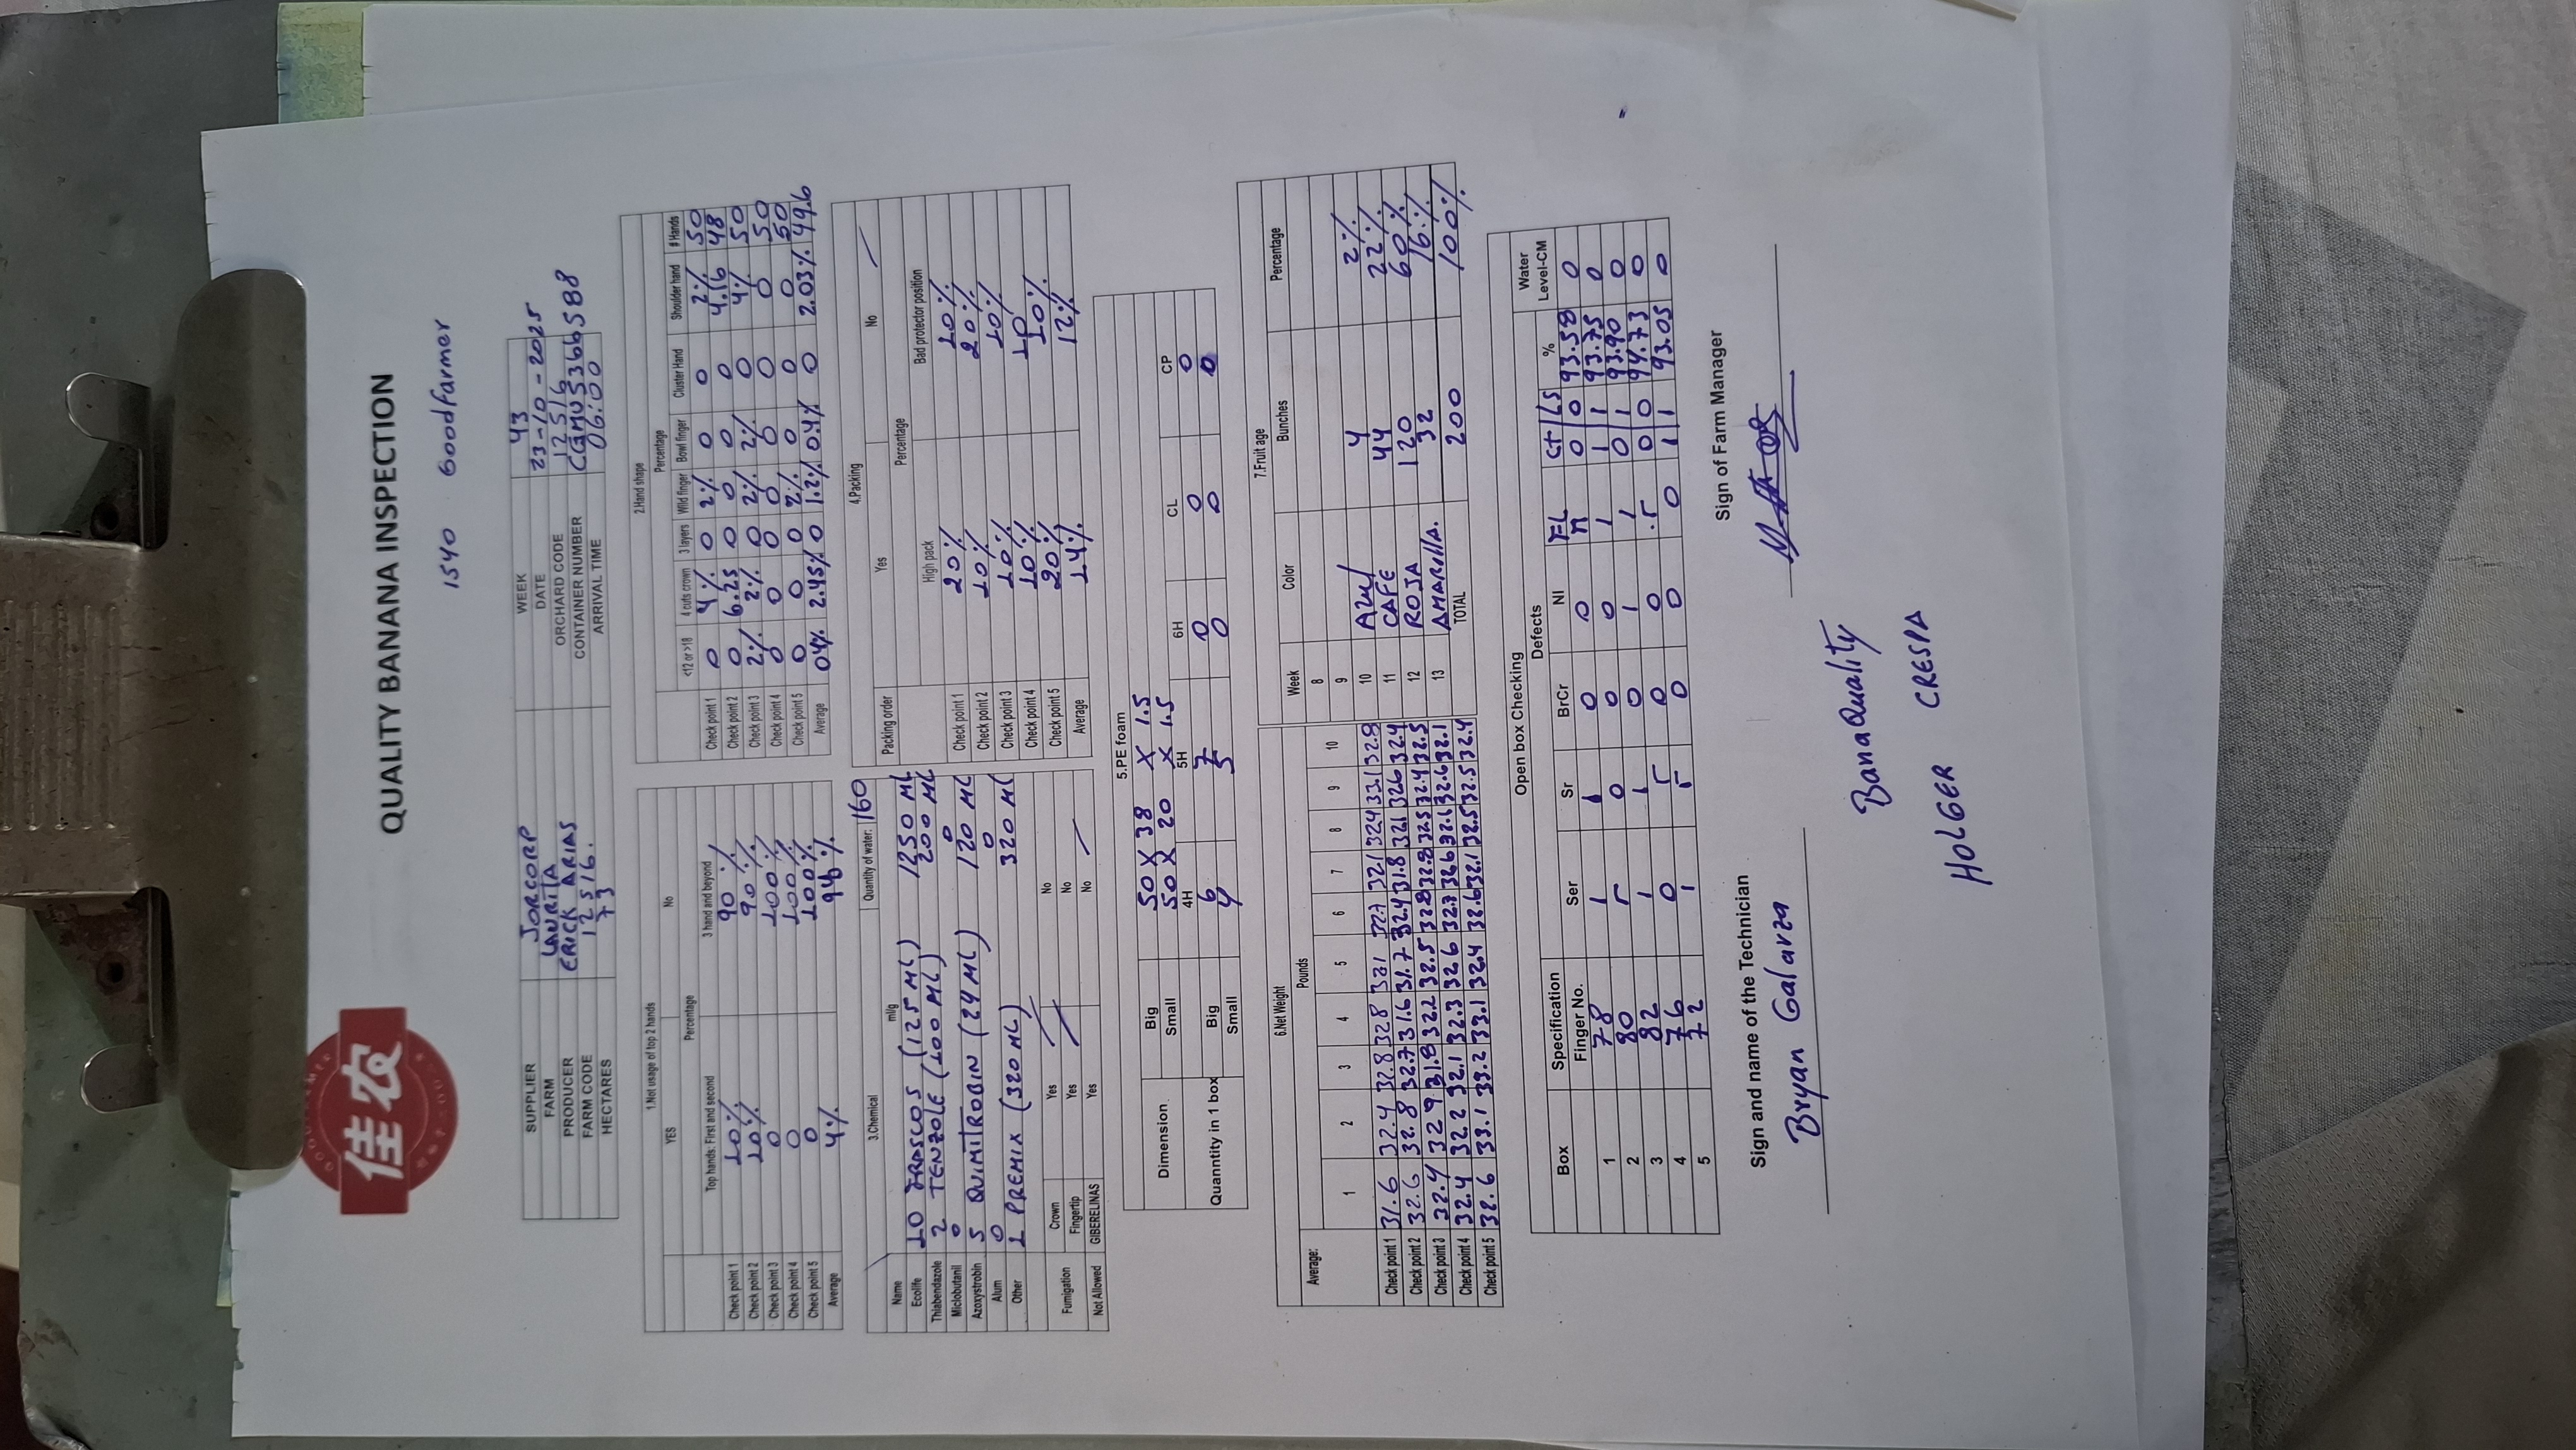 佳农
QUALITY BANANA INSPECTION
1540 Goodfarmer
SUPPLIER JORCORP WEEK 43
FARM LAURITA DATE 23-10-2025
PRODUCER ERICK ARIAS ORCHARD CODE 12516
FARM CODE 12516. CONTAINER NUMBER CGMU5366588
HECTARES 73 ARRIVAL TIME 06:00
1.Not usage of top 2 hands
YES No
Percentage
Top hands: First and second 3 hand and beyond
Check point 1 10% 90%
Check point 2 10% 90%
Check point 3 0 100%
Check point 4 0 100%
Check point 5 0 100%
Average 4%
2.Hand shape
Percentage
<12 or >18 4 cuts crown 3 layers Wild finger Bowl finger Cluster Hand Shoulder hand # Hands
Check point 1 0 4% 0 2% 0 0 2% 50
Check point 2 0 6.25 0 0 0 0 4.16 48
Check point 3 2% 2% 0 2% 2% 0 4% 50
Check point 4 0 0 0 0 0 0 0 50
Check point 5 0 0 0 2% 0 0 0 50
Average 04% 2.45% 0 1.2% 0.4% 0 2.03% 49.6
3.Chemical Quantity of water: 160
Name ml/g
Ecolife 10 FRASCOS (125 ML) 1250 ML
Thiabendazole 2 TENZOLE (100 ML) 200 ML
Miclobutanil 0 0
Azoxystrobin 5 QUIMITROBIN (24 ML) 120 ML
Alum 0 0
Other 1 PREMIX (320 ML) 320 ML
Fumigation Crown Yes No
Fingertip Yes No
Not Allowed GIBERELINAS Yes No
4.Packing
Packing order Yes No
Percentage
High pack Bad protector position
Check point 1 20% 10%
Check point 2 10% 20%
Check point 3 10% 10%
Check point 4 10% 10
Check point 5 20% 10%
Average 14% 12%
5.PE foam
Dimension Big 50 X 38 X 1.5
Small 50 X 20 X 1.5
4H 5H 6H CL CP
Quanntity in 1 box Big 6 7 0 0 0
Small 4 5 0 0 0
6.Net Weight
Average: Pounds
1 2 3 4 5 6 7 8 9 10
Check point 1 31.6 32.4 32.8 328 331 32.7 32.1 324 33.1 32.8
Check point 2 32.6 32.8 32.7 31.6 31.7 32.4 31.8 321 326 32.4
Check point 3 32.4 329 31.8 32.2 32.5 32.8 32.8 32.5 32.4 32.5
Check point 4 32.4 32.2 32.1 32.3 32.6 32.7 32.6 32.6 32.6 32.1
Check point 5 32.6 33.1 33.2 33.1 32.4 32.6 32.1 32.5 32.5 32.4
7.Fruit age
Week Color Bunches Percentage
8
9
10 Azul 4 2%
11 CAFE 44 22%
12 ROJA 120 60%
13 AMARILLA. 32 16%
TOTAL 200 100%
Open box Checking
Box Specification Defects Water
Finger No. Ser Sr BrCr NI FL Ct Ls % Level-CM
1 78 1 1 0 0 0 0 93.58 0
2 80 r 0 0 0 1 1 1 93.75 0
3 82 1 1 0 1 1 0 1 93.90 0
4 76 0 r 0 0 r 0 0 94.73 0
5 72 1 r 0 0 0 1 1 93.05 0
Sign and name of the Technician Sign of Farm Manager
Bryan Galarza
BanaQuality
HOLGER CRESPA